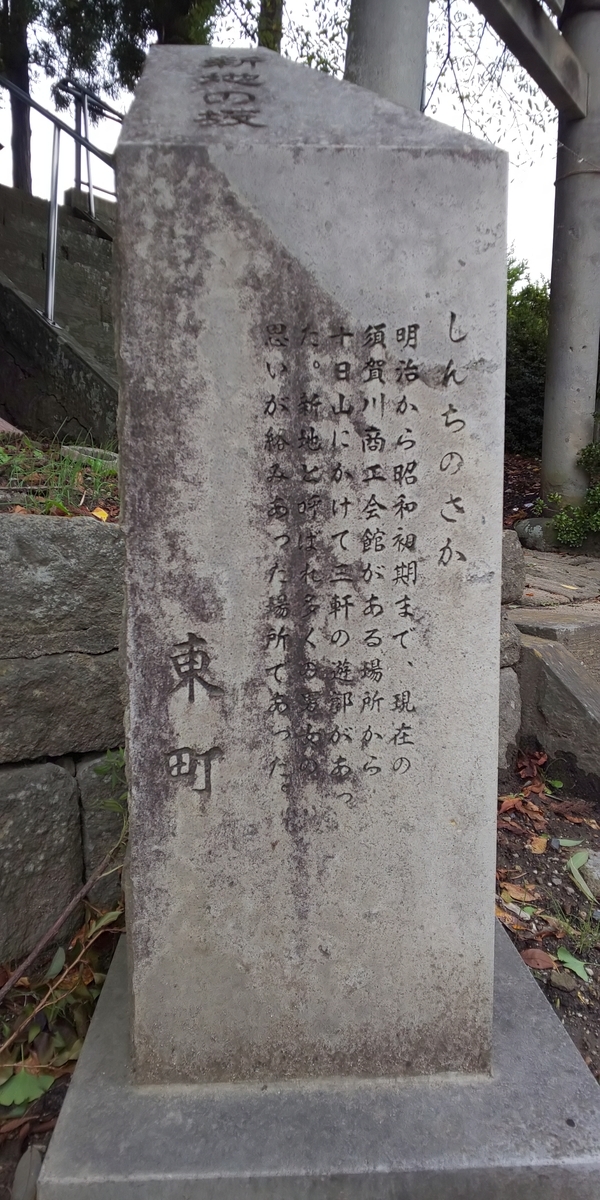 新地の坂
しんちのさか
明治から昭和初期まで、現在の
須賀川商工会館がある場所から
十日山にかけて三軒の遊郭があっ
た。新地と呼ばれ多くの男女の
思いが絡みあった場所であった。
東町